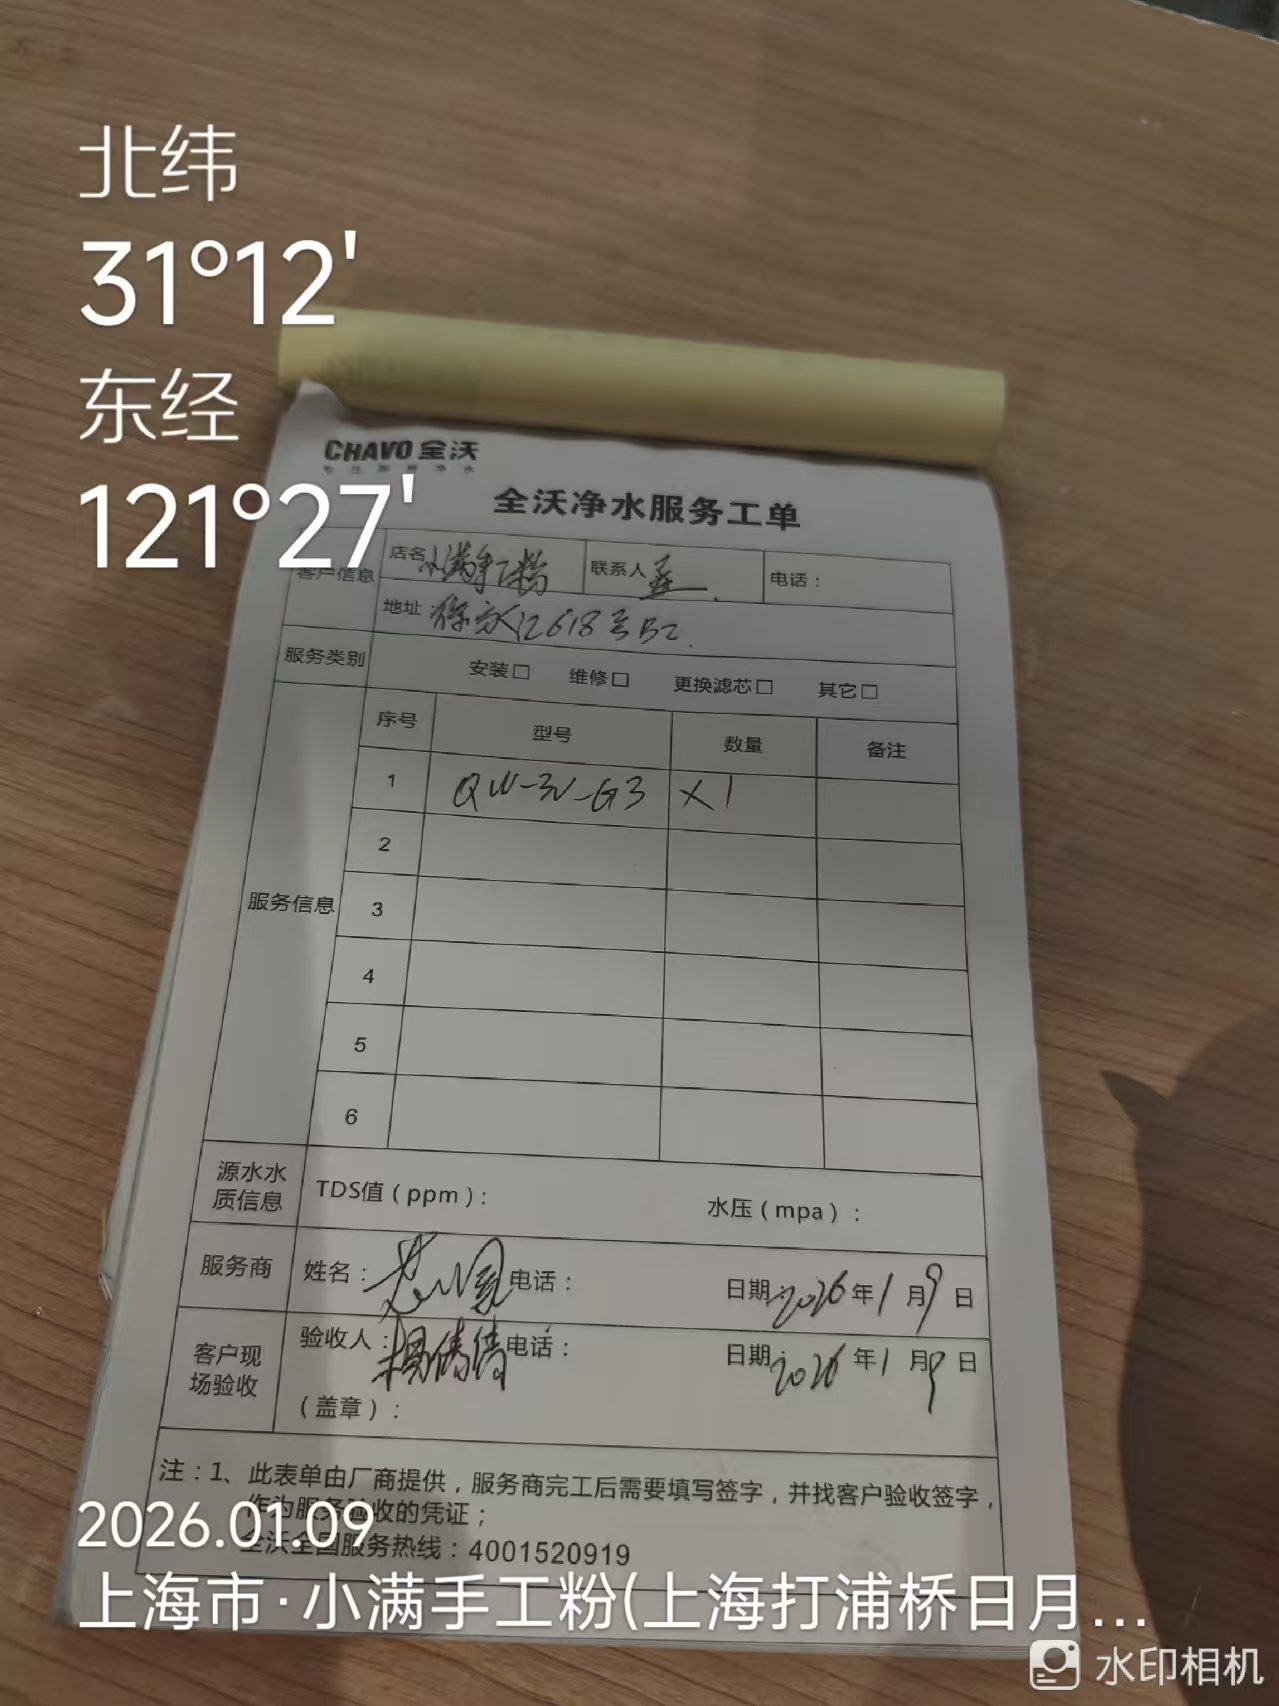 北纬
31°12'
东经
121°27'
CHAVO 全沃
全沃净水服务工单
客户信息
店名 小满手工粉
联系人
电话：
地址： 徐家汇618号B2
服务类别
安装□ 维修□ 更换滤芯□ 其它□
服务信息
序号 型号 数量 备注
1 QW-3V-G3 ×1
2
3
4
5
6
源水水
质信息
TDS值（ppm）： 水压（mpa）：
服务商
姓名： 电话： 日期：2026年1月9日
客户现
场验收
验收人：杨倩倩 电话： 日期：2026年1月9日
（盖章）：
注：1、此表单由厂商提供，服务商完工后需要填写签字，并找客户验收签字，
作为服务验收的凭证；
全沃全国服务热线：4001520919
2026.01.09
上海市·小满手工粉(上海打浦桥日月...
水印相机